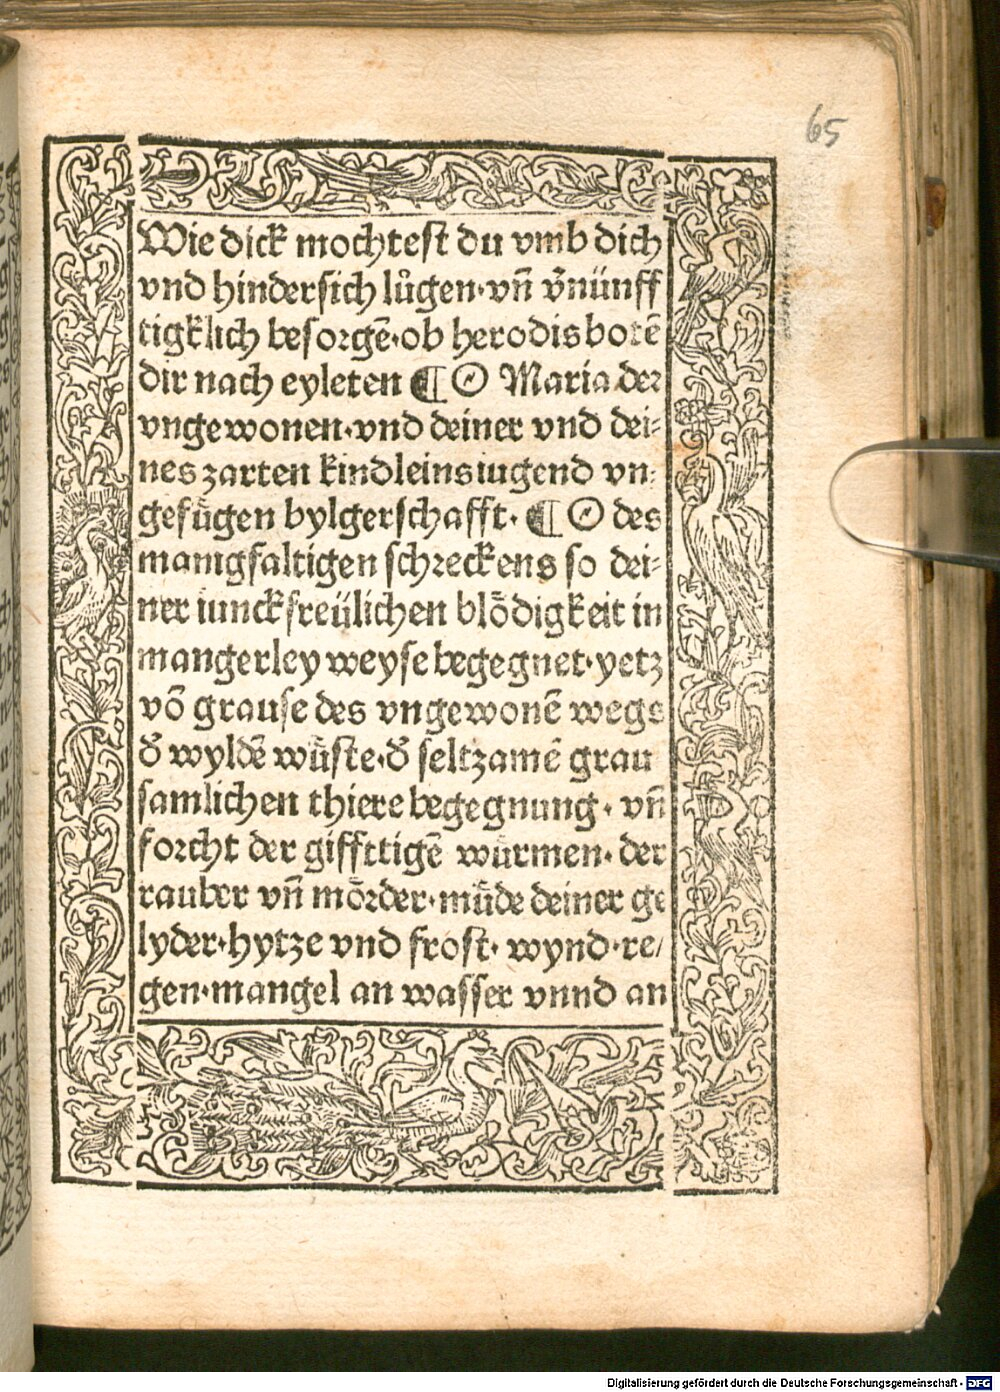 65
Wie dick mochtest du vmb dich
vnd hindersich lůgen·vñ v̄nünff
tigk̄lich besorgē·ob herodis botē
dir nach eyleten ¶ O Maria der
vngewonen·vnd deiner vnd dei⸗
nes zarten kindleins iugend vn⸗
gefügen bylgerschafft· ¶ O des
manigfaltigen schreckens so dei⸗
ner iunckfreülichen blödigkeit in
mangerley weyse begegnet·yetz
vō grause des vngewonē wegs
d̄ wyldē wüste·d̄ seltzamē grau
samlichen thiere begegnung· vñ
forcht der giffttigē würmen· der
rauber vñ mörder·müde deiner ge
lyder·hytze vnd frost· wynd·re/
gen·mangel an wasser vnnd an
Digitalisierung gefördert durch die Deutsche Forschungsgemeinschaft - DFG